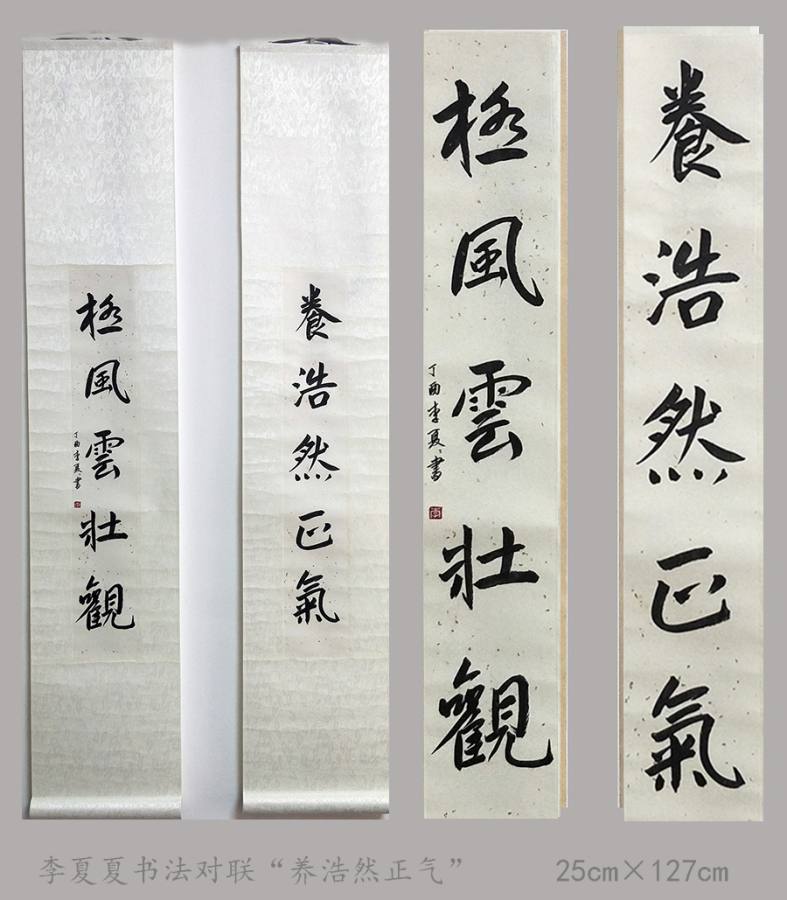 養浩然正氣
極風雲壯觀
丁酉李夏夏書
養浩然正氣
極風雲壯觀
丁酉李夏夏書
李夏夏书法对联“养浩然正气”
25cm×127cm